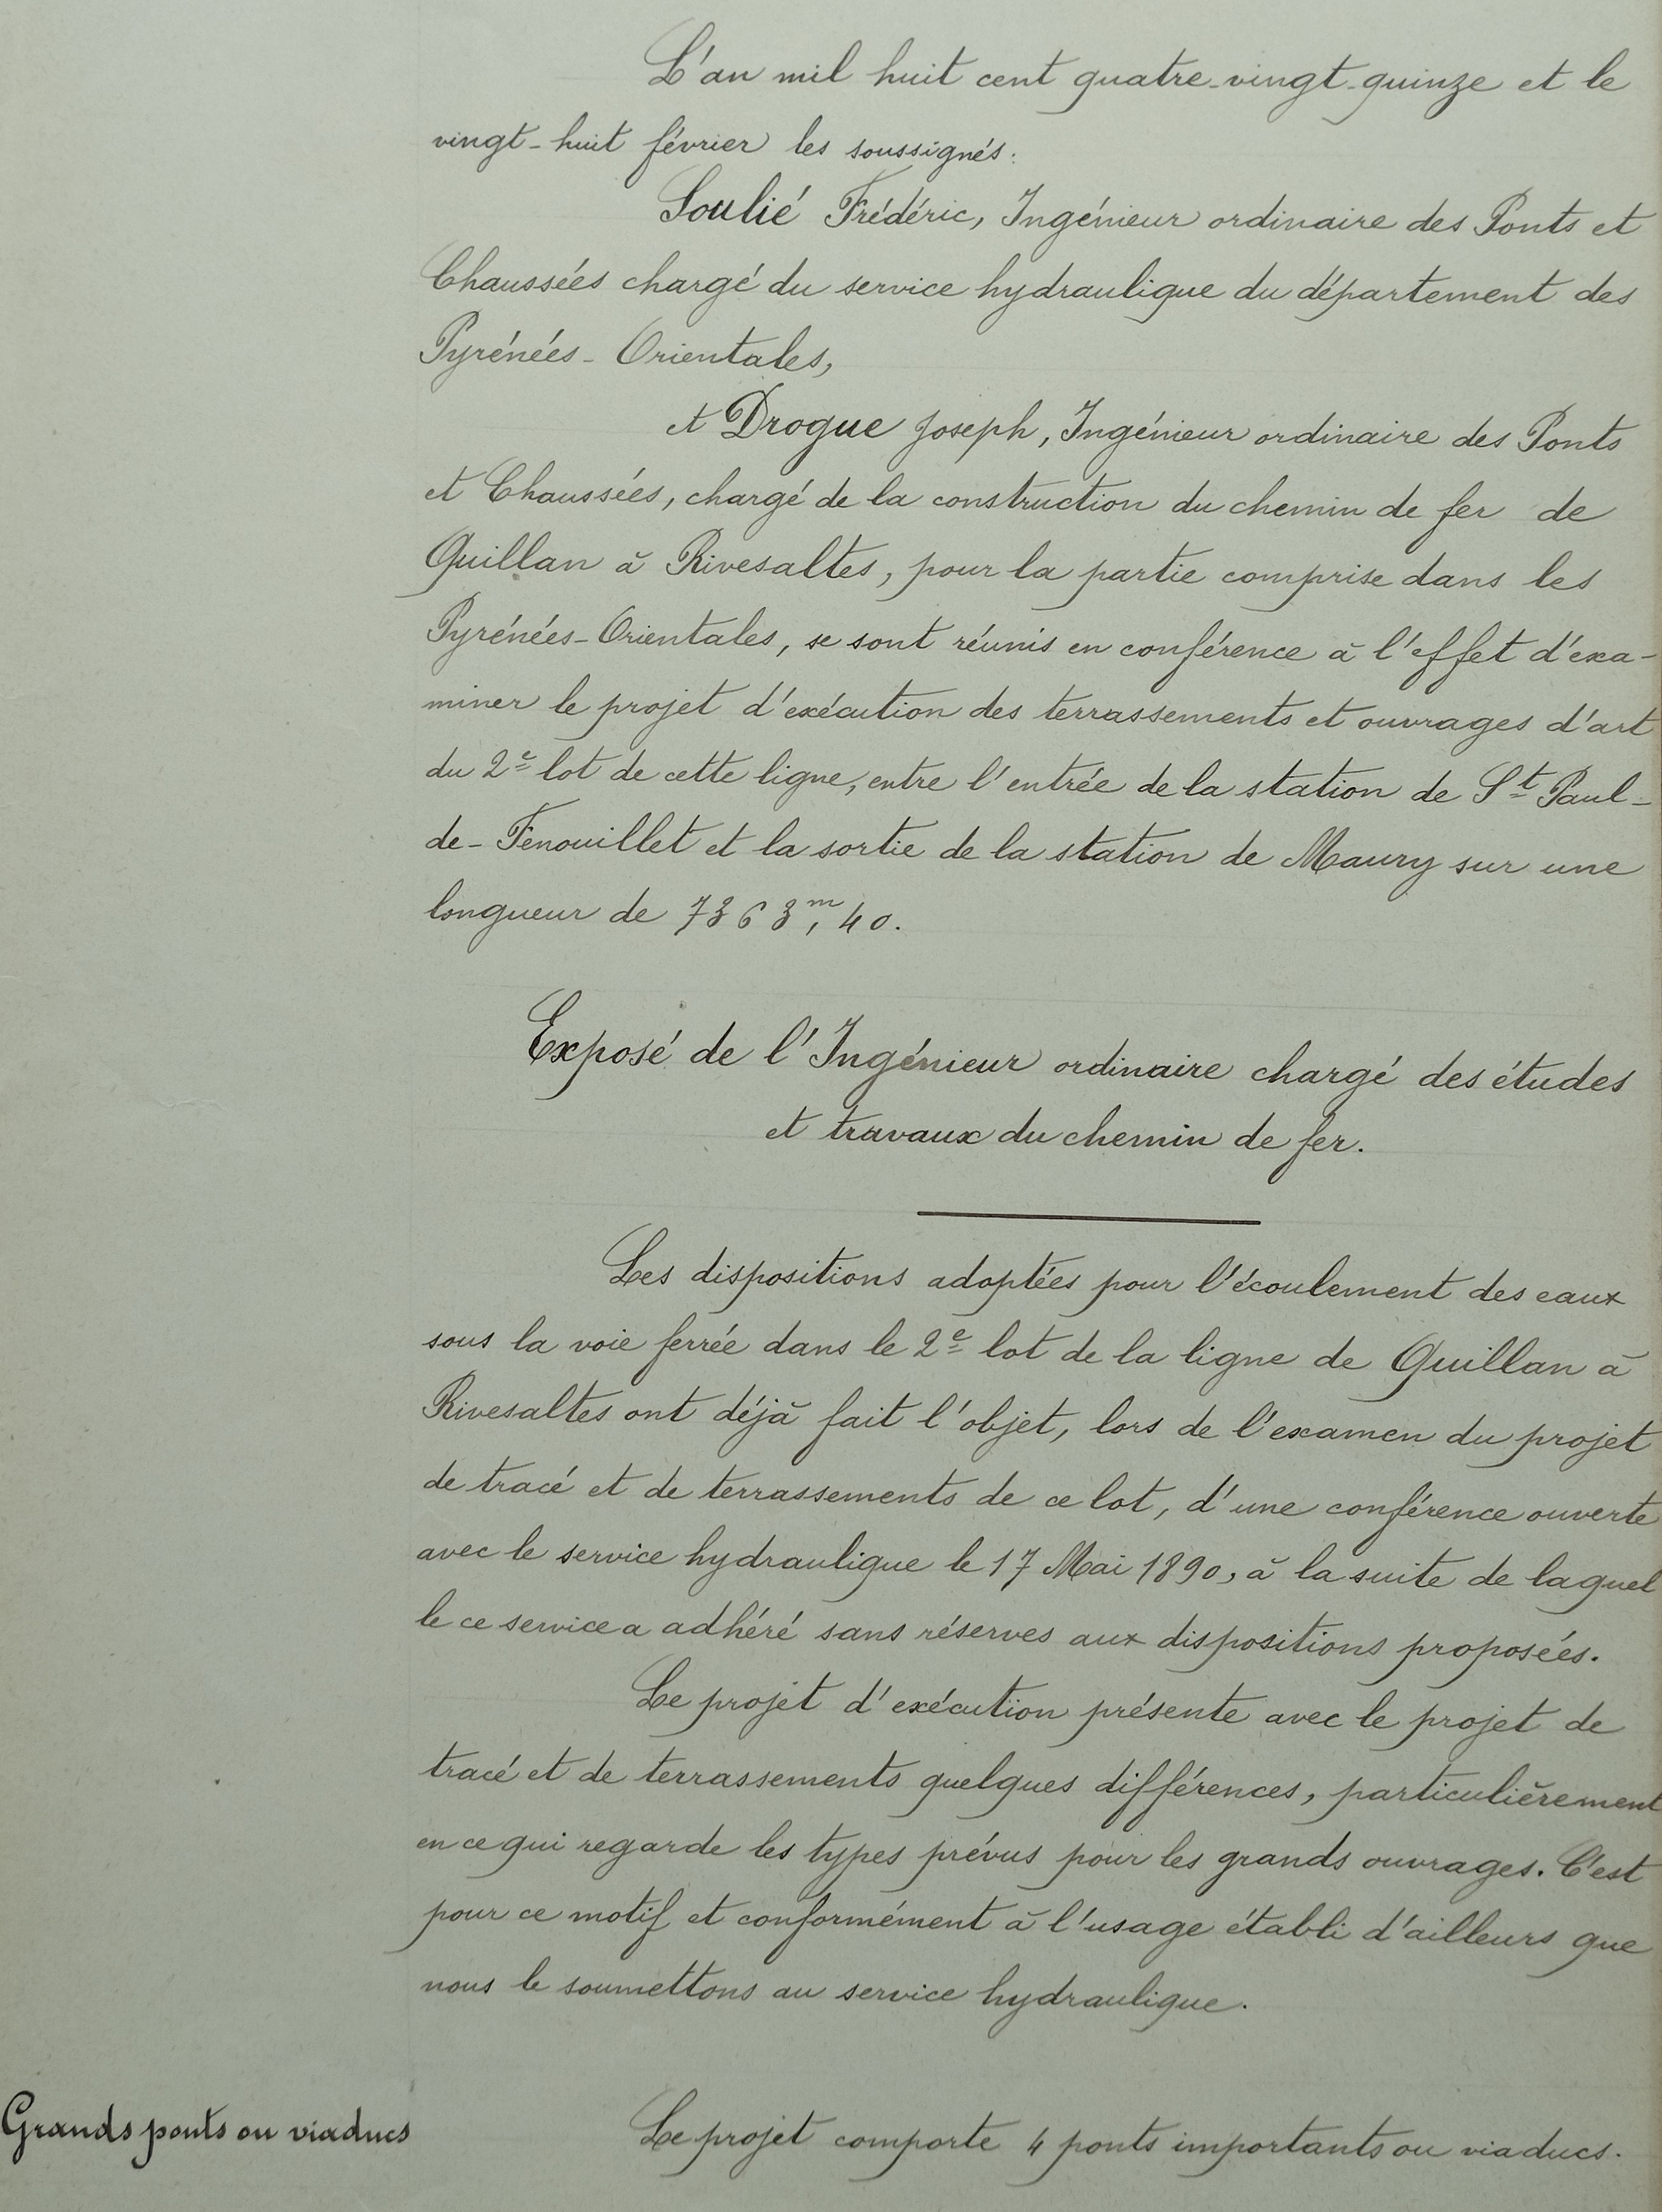 L'an mil huit cent quatre-vingt-quinze et le
vingt-huit février les soussignés:
Soulié Frédéric, Ingénieur ordinaire des Ponts et
Chaussées chargé du service hydraulique du département des
Pyrénées-Orientales,
et Drogue Joseph, Ingénieur ordinaire des Ponts
et Chaussées, chargé de la construction du chemin de fer de
Quillan à Rivesaltes, pour la partie comprise dans les
Pyrénées-Orientales, se sont réunis en conférence à l'effet d'exa-
miner le projet d'exécution des terrassements et ouvrages d'art
du 2e lot de cette ligne, entre l'entrée de la station de St Paul-
de-Fenouillet et la sortie de la station de Maury sur une
longueur de 7363m,40.
Exposé de l'Ingénieur ordinaire chargé des études
et travaux du chemin de fer.
Les dispositions adoptées pour l'écoulement des eaux
sous la voie ferrée dans le 2e lot de la ligne de Quillan à
Rivesaltes ont déjà fait l'objet, lors de l'examen du projet
de tracé et de terrassements de ce lot, d'une conférence ouverte
avec le service hydraulique le 17 Mai 1890, à la suite de laquel
le ce service a adhéré sans réserves aux dispositions proposées.
Le projet d'exécution présente avec le projet de
tracé et de terrassements quelques différences, particulièrement
en ce qui regarde les types prévus pour les grands ouvrages. C'est
pour ce motif et conformément à l'usage établi d'ailleurs que
nous le soumettons au service hydraulique.
Grands ponts ou viaducs
Le projet comporte 4 ponts importants ou viaducs.